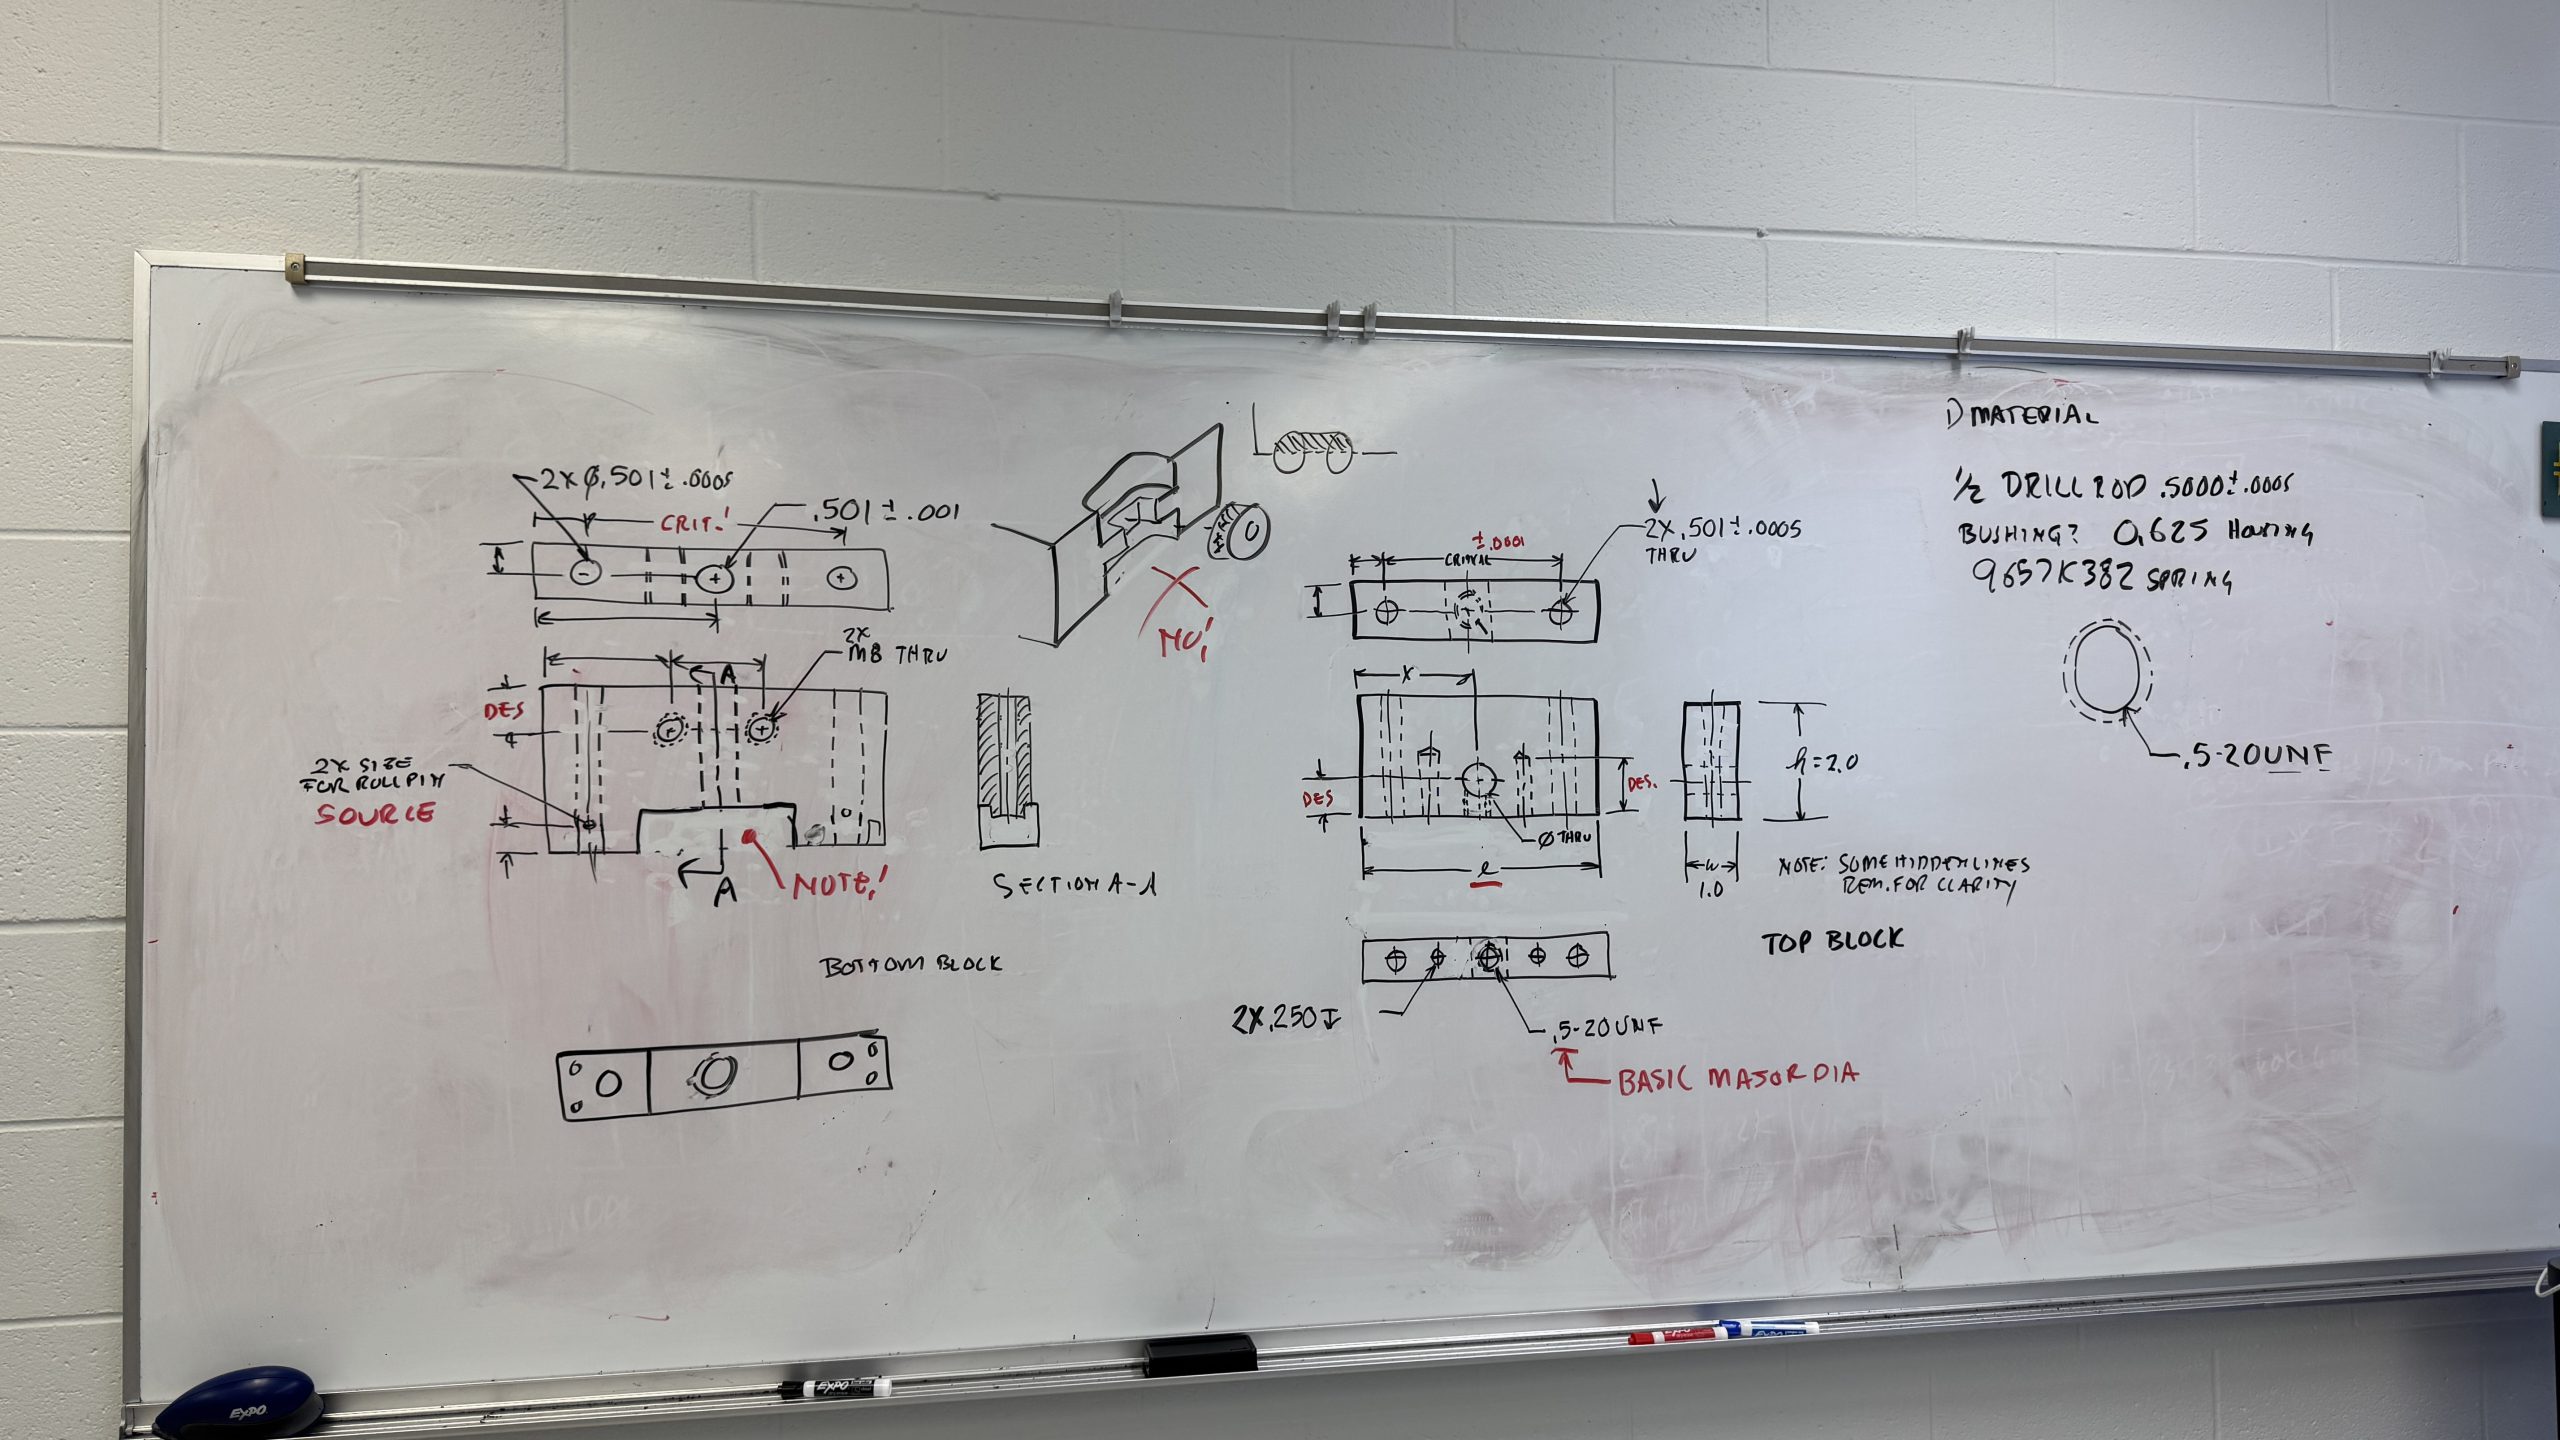 2X Ø.501±.0005
CRIT.!
.501±.001
2X
M8 THRU
A
DES
2X SIZE
FOR ROLL PIN
SOURCE
A
NOTE!
SECTION A-A
BOTTOM BLOCK
NO!
±.0001
2X.501±.0005
THRU
X
DES
DES.
Ø THRU
l
h=2.0
w
1.0
NOTE: SOME HIDDEN LINES
REM. FOR CLARITY
TOP BLOCK
2X.250↧
.5-20UNF
BASIC MAJOR DIA
1) MATERIAL
1/2 DRILL ROD .5000±.0005
BUSHING? 0.625 HOUSING
9657K382 SPRING
.5-20UNF
EXPO
EXPO
EXPO
EXPO